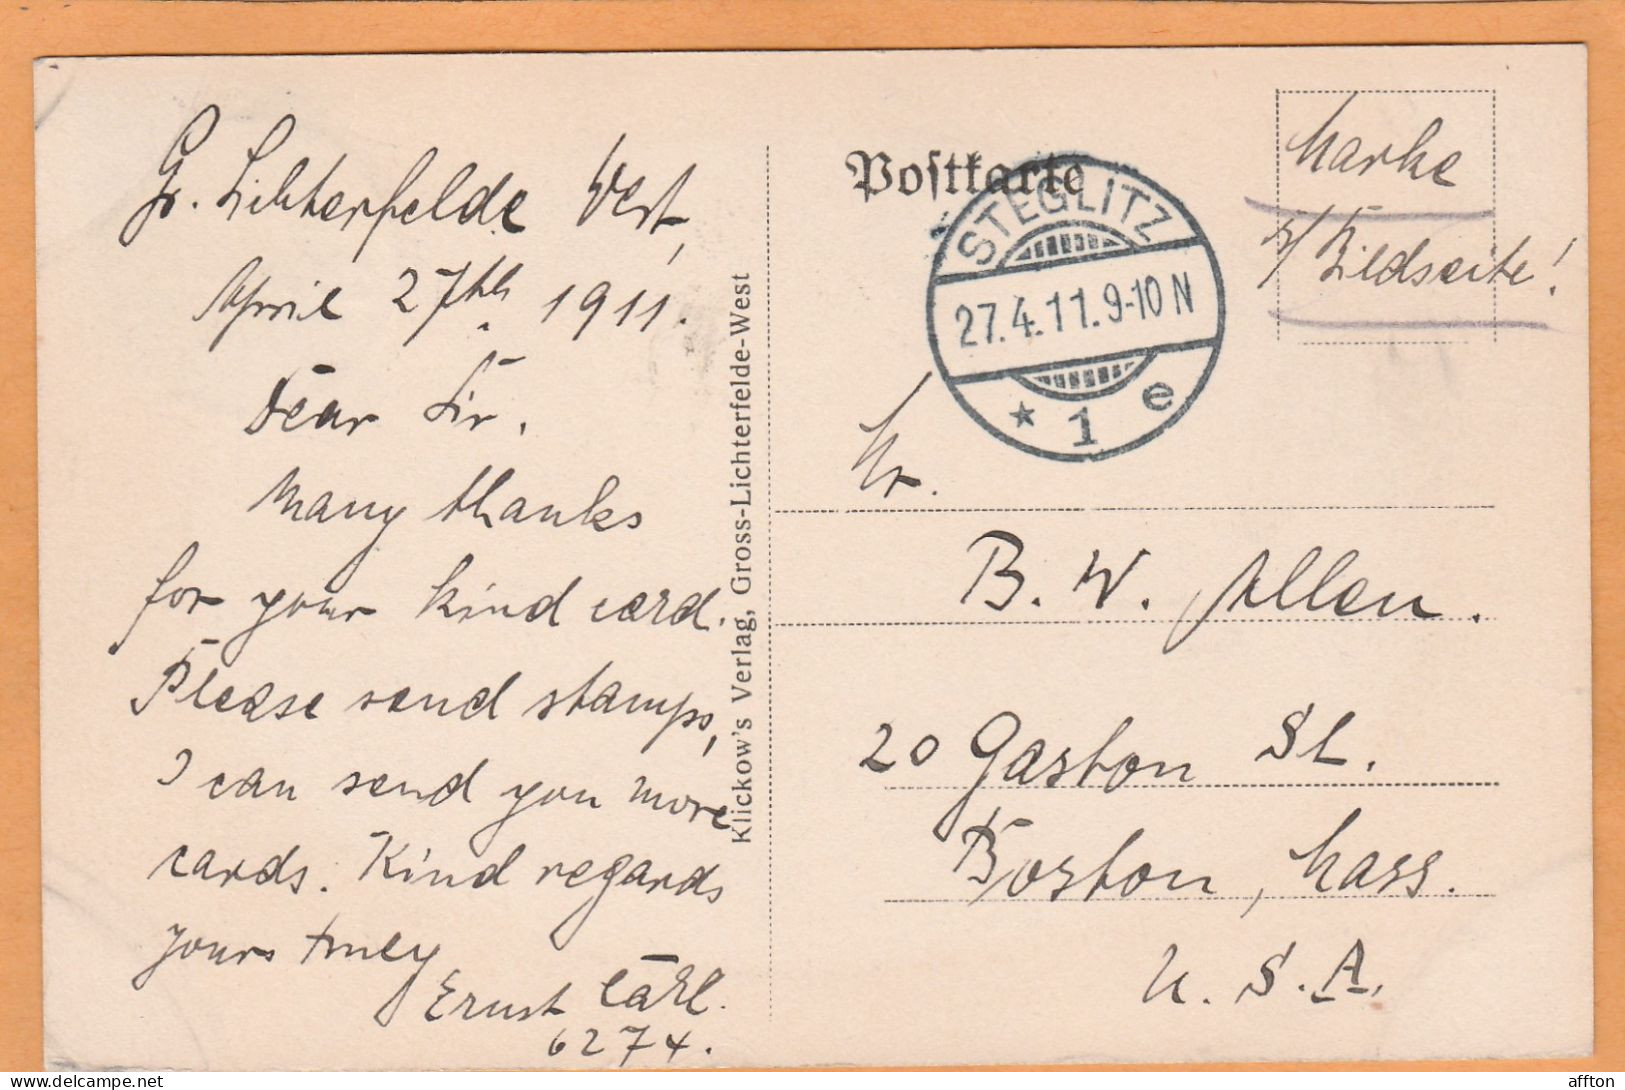 Gr. Lichterfelde West,
April 27th 1911.
Dear Sir.
Many thanks
for your kind card.
Please send stamps,
I can send you more
cards. Kind regards
yours truly
Ernst Carl.
6274.
Klickow's Verlag, Gross-Lichterfelde-West
Postkarte
STEGLITZ
27.4.11.9-10 N
* 1 e
Marke
Bildseite!
Mr.
B. W. Allen.
20 Gaston St.
Boston, Mass.
U. S. A.
affton